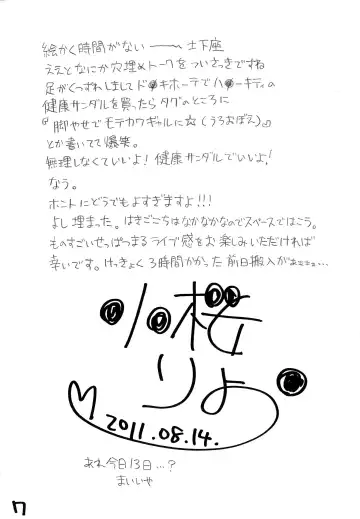 絵かく時間がない――〜 土下座
ええとなにか穴埋めトークをついさっきですね
足がくつずれしましてド○キホーテでハ○ーキティの
健康サンダルを買ったらタグのところに
『脚やせでモテカワギャルに☆(うろおぼえ)』
とか書いてて爆笑。
無理しなくていいよ!健康サンダルでいいよ!
なう。
ホントにどうでもよすぎますよ!!!
よし埋まった。はきごこちはなかなかなのでスペースではこう。
ものすごいせっぱつまるライブ感をお楽しみいただければ
幸いです。けっきょく3時間かかった前日搬入がぁぁぁぁ…
小桜
りよ
2011.08.14.
あれ今日13日…?
まいいや
7